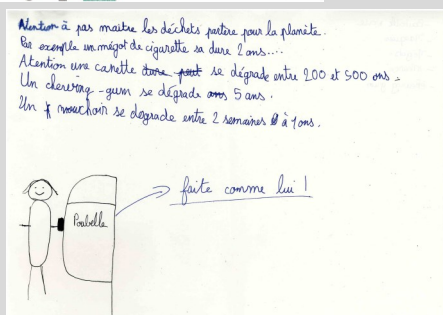 Atention à pas maitre les déchets partère pour la planète.
Par exemple un mégot de cigarette sa dure 2 ans....
Atention une canette se dégrade entre 200 et 500 ans.
Un chewing-gum se dégrade 5 ans.
Un mouchoir se degrade entre 2 semaines à 7 ans.
faite comme lui !
Poubelle